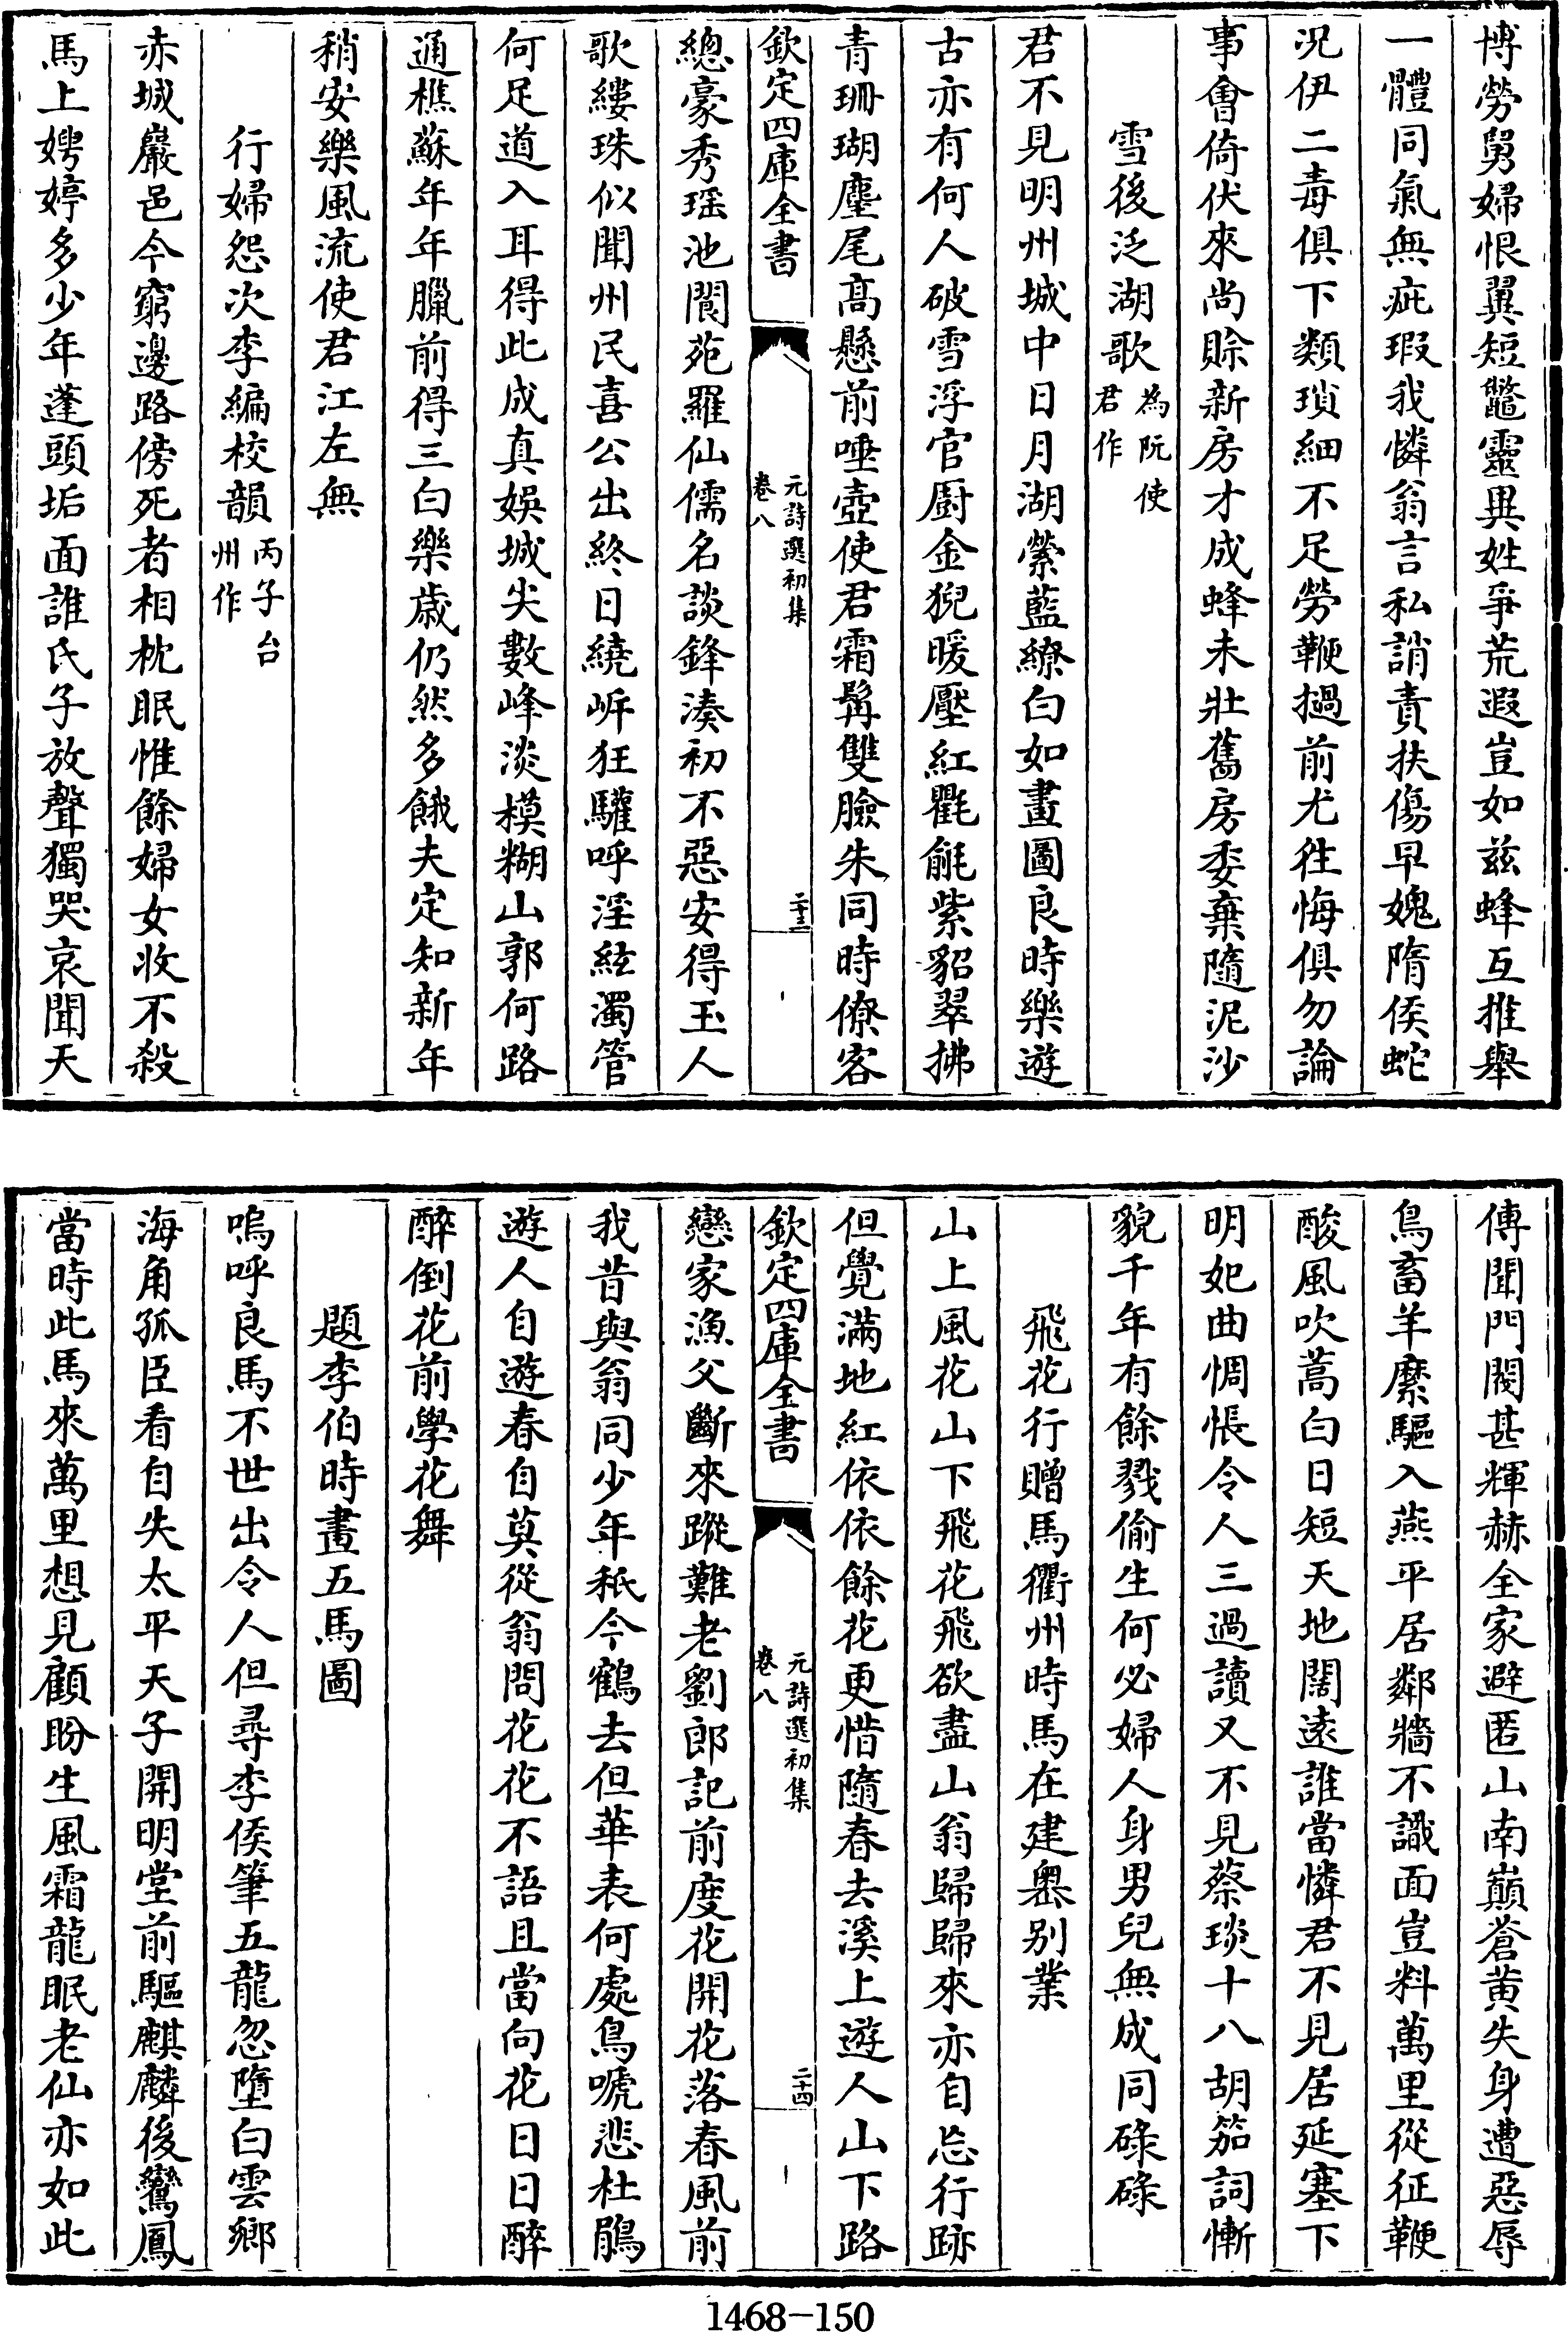 博勞舅婦恨翼短鼈靈異姓爭荒遐豈如兹蜂互推舉
一體同氣無疵瑕我憐翁言私誚責扶傷早媿隋侯蛇
况伊二毒俱下類瑣細不足勞鞭撾前尤徃悔俱勿論
事會倚伏來尚賖新房才成蜂未壯舊房委棄隨泥沙
雪後泛湖歌為阮使君作
君不見明州城中日月湖縈藍繚白如畫圖良時樂遊
古亦有何人破雪浮官厨金猊暖壓紅氍毹紫貂翠拂
青珊瑚麈尾高懸前唾壺使君霜髯雙臉朱同時僚客
欽定四庫全書
元詩選初集
卷八
二十三
總豪秀瑶池閬苑羅仙儒名談鋒湊初不惡安得玉人
歌縷珠似聞州民喜公出終日繞岓狂驩呼淫絃濁管
何足道入耳得此成真娛城尖數峰淡模糊山郭何路
通樵蘇年年臘前得三白樂歲仍然多餓夫定知新年
稍安樂風流使君江左無
行婦怨次李編校韻丙子台州作
赤城巖邑今窮邊路傍死者相枕眠惟餘婦女收不殺
馬上娉婷多少年蓬頭垢面誰氏子放聲獨哭哀聞天
傳聞門閥甚輝赫全家避匿山南巔蒼黄失身遭惡辱
鳥畜羊縻驅入燕平居鄰牆不識面豈料萬里從征鞭
酸風吹蒿白日短天地闊遠誰當憐君不見居延塞下
明妃曲惆悵令人三過讀又不見蔡琰十八胡笳詞慚
貌千年有餘戮偷生何必婦人身男兒無成同碌碌
飛花行贈馬衢州時馬在建輿别業
山上風花山下飛花飛欲盡山翁歸歸來亦自忘行跡
但覺滿地紅依依餘花更惜隨春去溪上遊人山下路
欽定四庫全書
元詩選初集
卷八
二十四
戀家漁父斷來蹤難老劉郎記前度花開花落春風前
我昔與翁同少年秖今鶴去但華表何處鳥唬悲杜鵑
遊人自遊春自莫從翁問花花不語且當向花日日醉
醉倒花前學花舞
題李伯時畫五馬圖
嗚呼良馬不世出令人但尋李侯筆五龍忽墮白雲鄉
海角孤臣看自失太平天子開明堂前驅麒麟後鸞鳳
當時此馬來萬里想見顧盼生風霜龍眠老仙亦如此
1468-150